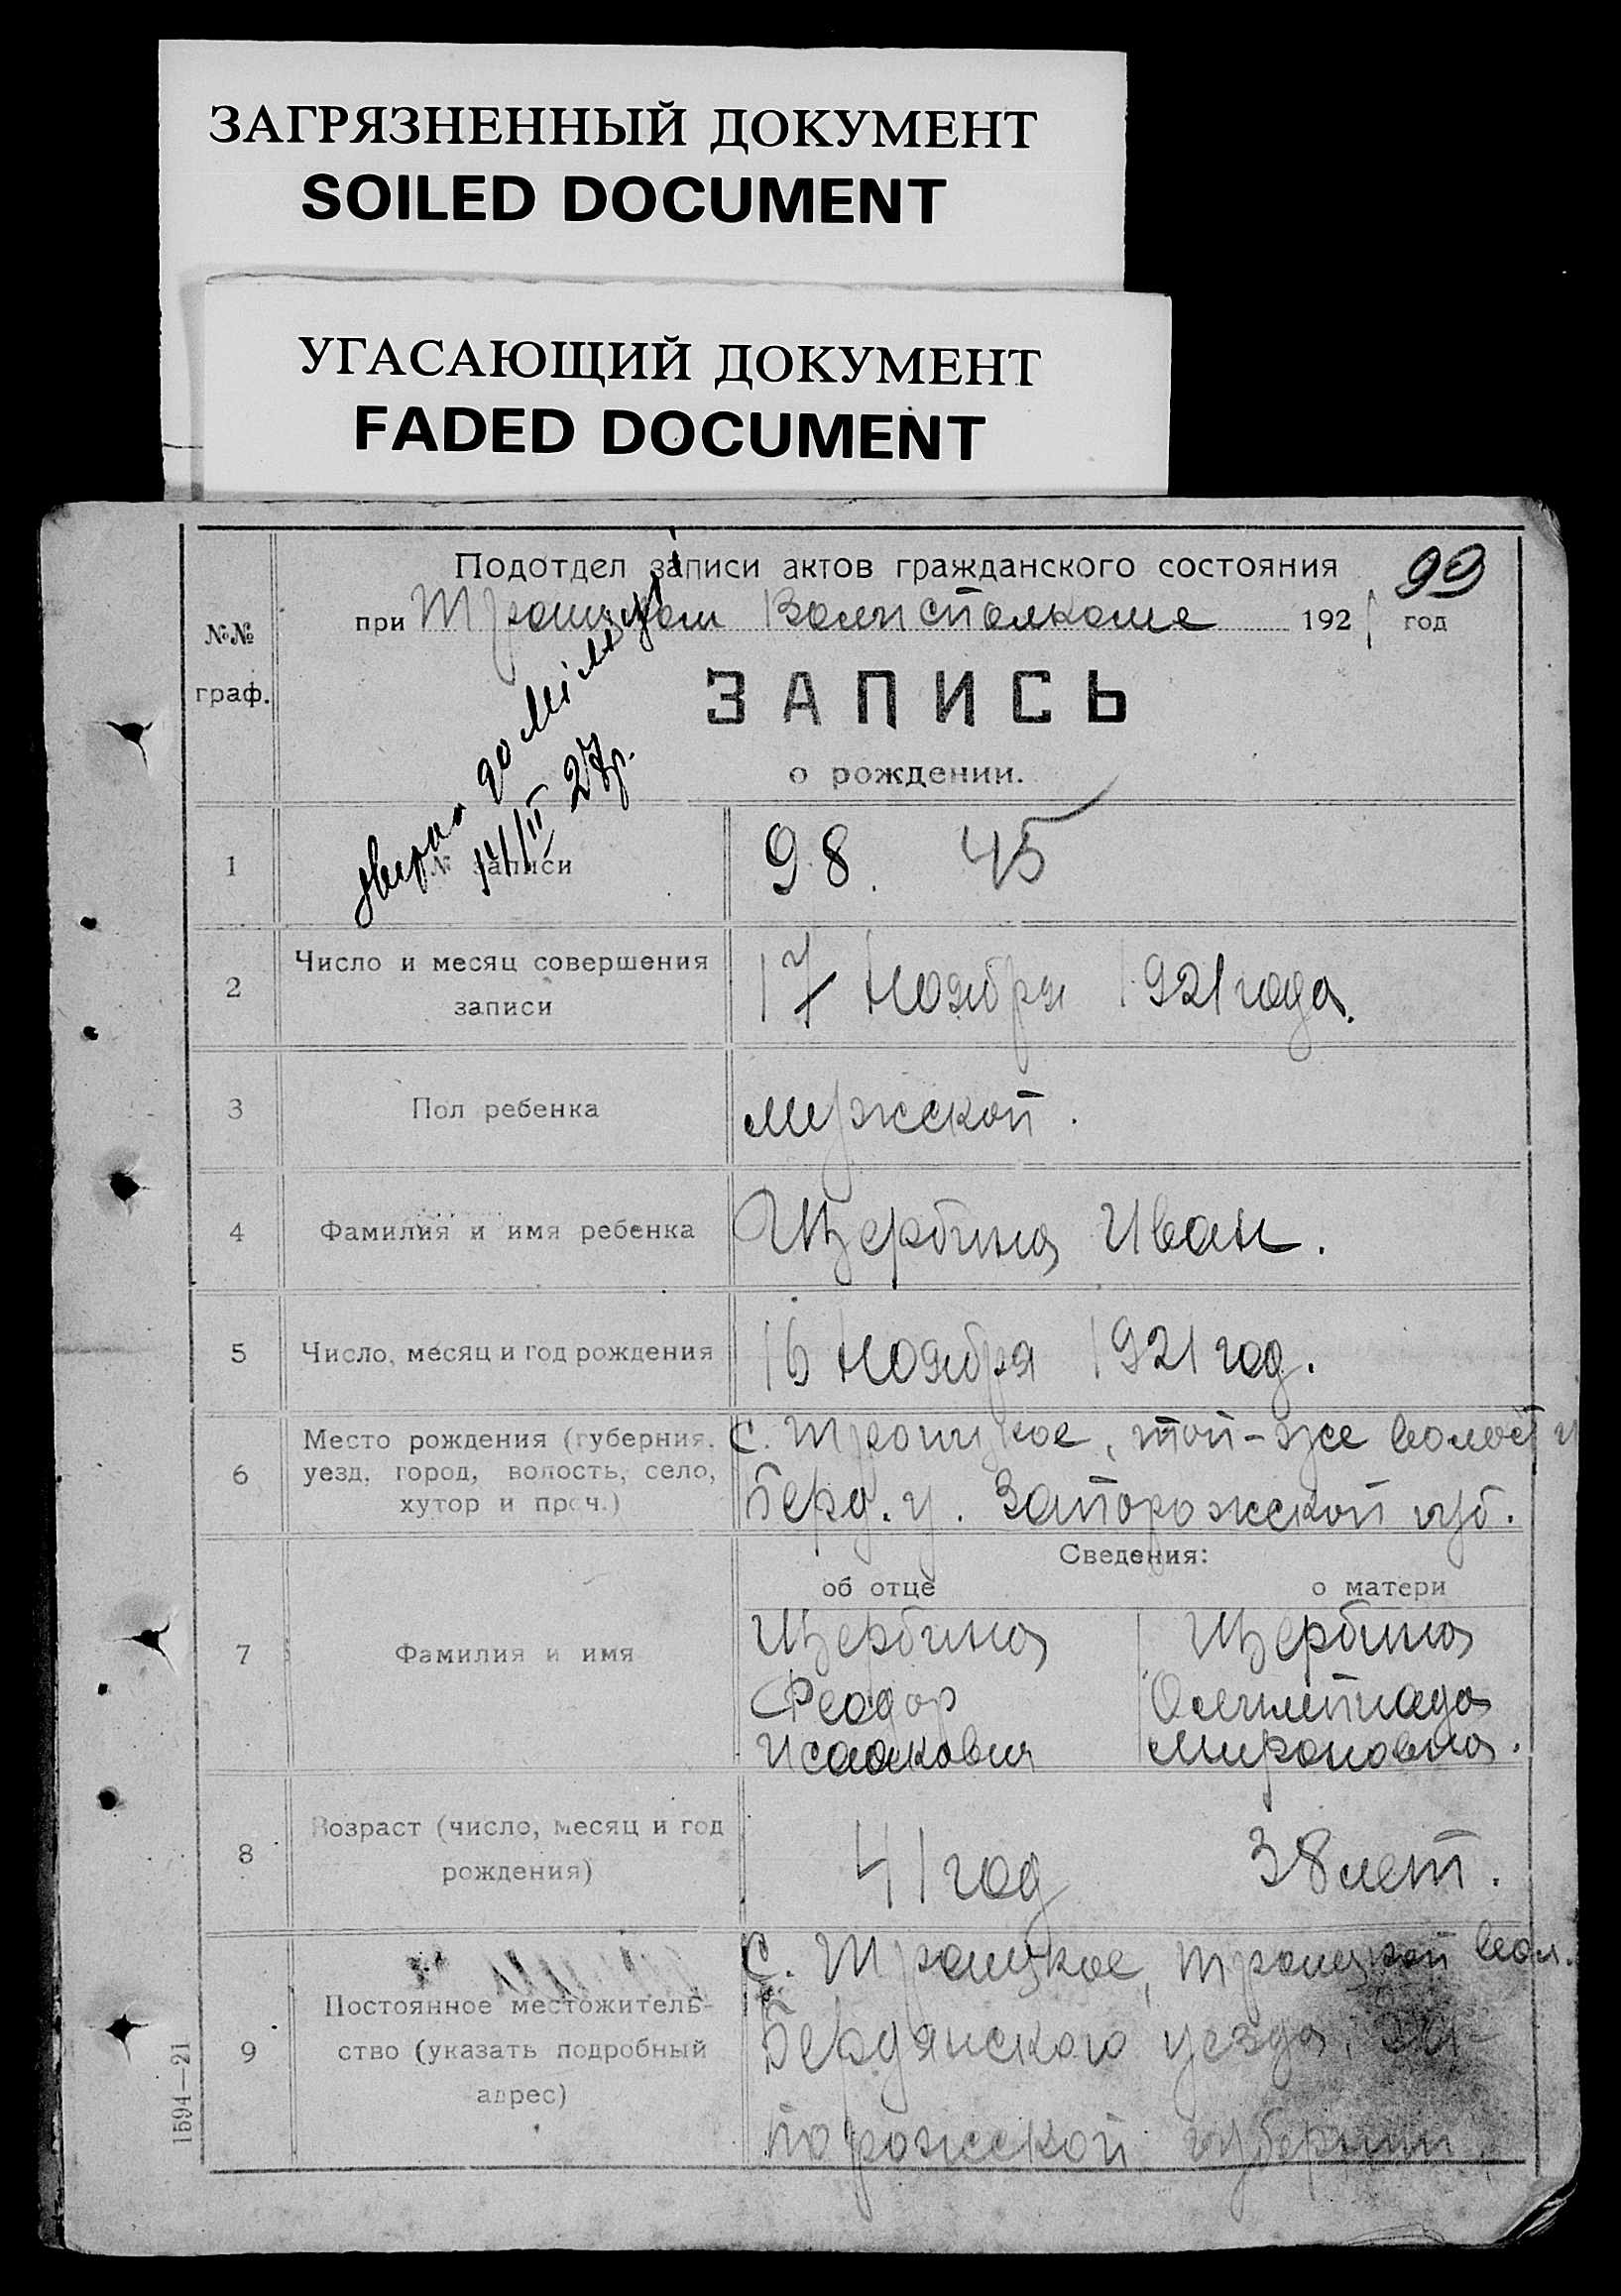 ЗАГРЯЗНЕННЫЙ ДОКУМЕНТ
SOILED DOCUMENT
УГАСАЮЩИЙ ДОКУМЕНТ
FADED DOCUMENT
Подотдел записи актов гражданского состояния
99
при Троицком Волисполкоме 1921 год
№№
граф.
ЗАПИСЬ
о рождении.
до
14/II 27р.
1 № записи 98. 45
2 Число и месяц совершения
записи
17 Ноября 1921 года.
3 Пол ребенка мужской.
4 Фамилия и имя ребенка Щербина Иван.
5 Число, месяц и год рождения 16 Ноября 1921 год.
6 Место рождения (губерния,
уезд, город, волость, село,
хутор и проч.)
с. Троицкое, той-же волости
Берд. у. Запорожской губ.
Сведения:
об отце о матери
7 Фамилия и имя
Щербина Щербина
Феодор Олимпиада
Исаакович Мироновна.
8 Возраст (число, месяц и год
рождения)
41 год 38 лет.
9 Постоянное местожитель-
ство (указать подробный
адрес)
с. Троицкое, Троицкой вол.
Бердянского уезда, За-
порожской губернии.
1594—21